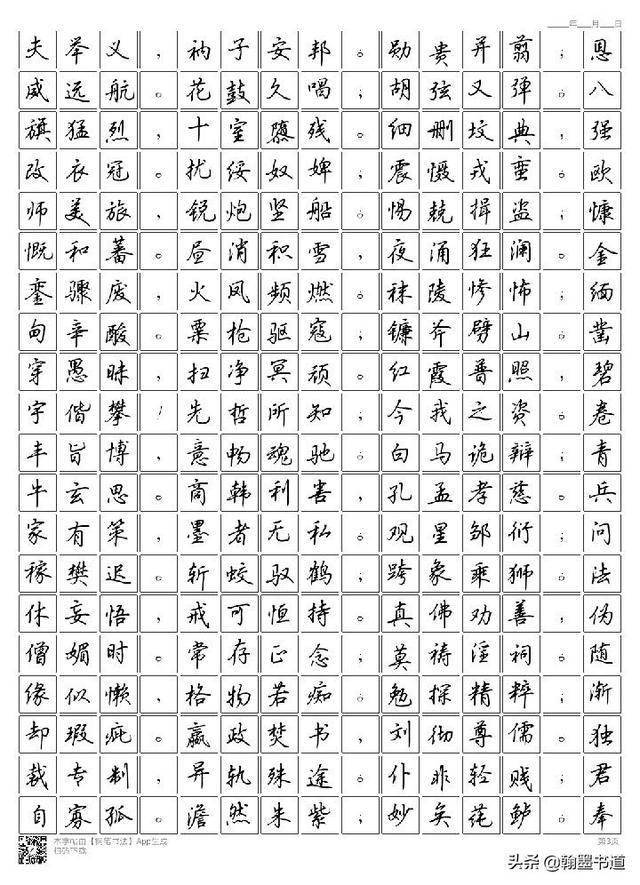 ____年___月___日
夫举义，衲子安邦。勋贵并翦；恩
威远航。花鼓久唱；胡弦又弹。八
旗猛烈，十室隳残。细删坟典，强
改衣冠。扰绥奴婢，震慑戎蛮。欧
师美旅，锐炮坚船；惕兢揖盗。慷
慨和蕃。昼消积雪，夜涌狂澜。金
銮骤废，火凤频燃。袜陵惨怖；缅
甸辛酸。粟枪驱寇；镰斧劈山。凿
穿愚昧，扫净冥顽。红霞普照，碧
宇偕攀，先哲所知；今我之资。卷
丰旨博，意畅魂驰。白马诡辩；青
牛玄思。商韩利害，孔孟孝慈。兵
家有策，墨者无私。观星邹衍；问
稼樊迟。斩蛟驭鹤；跨象乘狮。法
休妄悟，戒可恒持。真佛劝善，伪
僧媚时。常存正念，莫祷淫祠。随
缘似懒，格物若痴。勉探精粹；渐
却瑕疵。嬴政焚书，刘彻尊儒。独
裁专制，异轨殊途。仆非轻贱；君
自寡孤。澹然朱紫；妙矣莼鲈。奉
本字帖由【钢笔书法】App生成
扫码下载
第3页
头条@翰墨书道